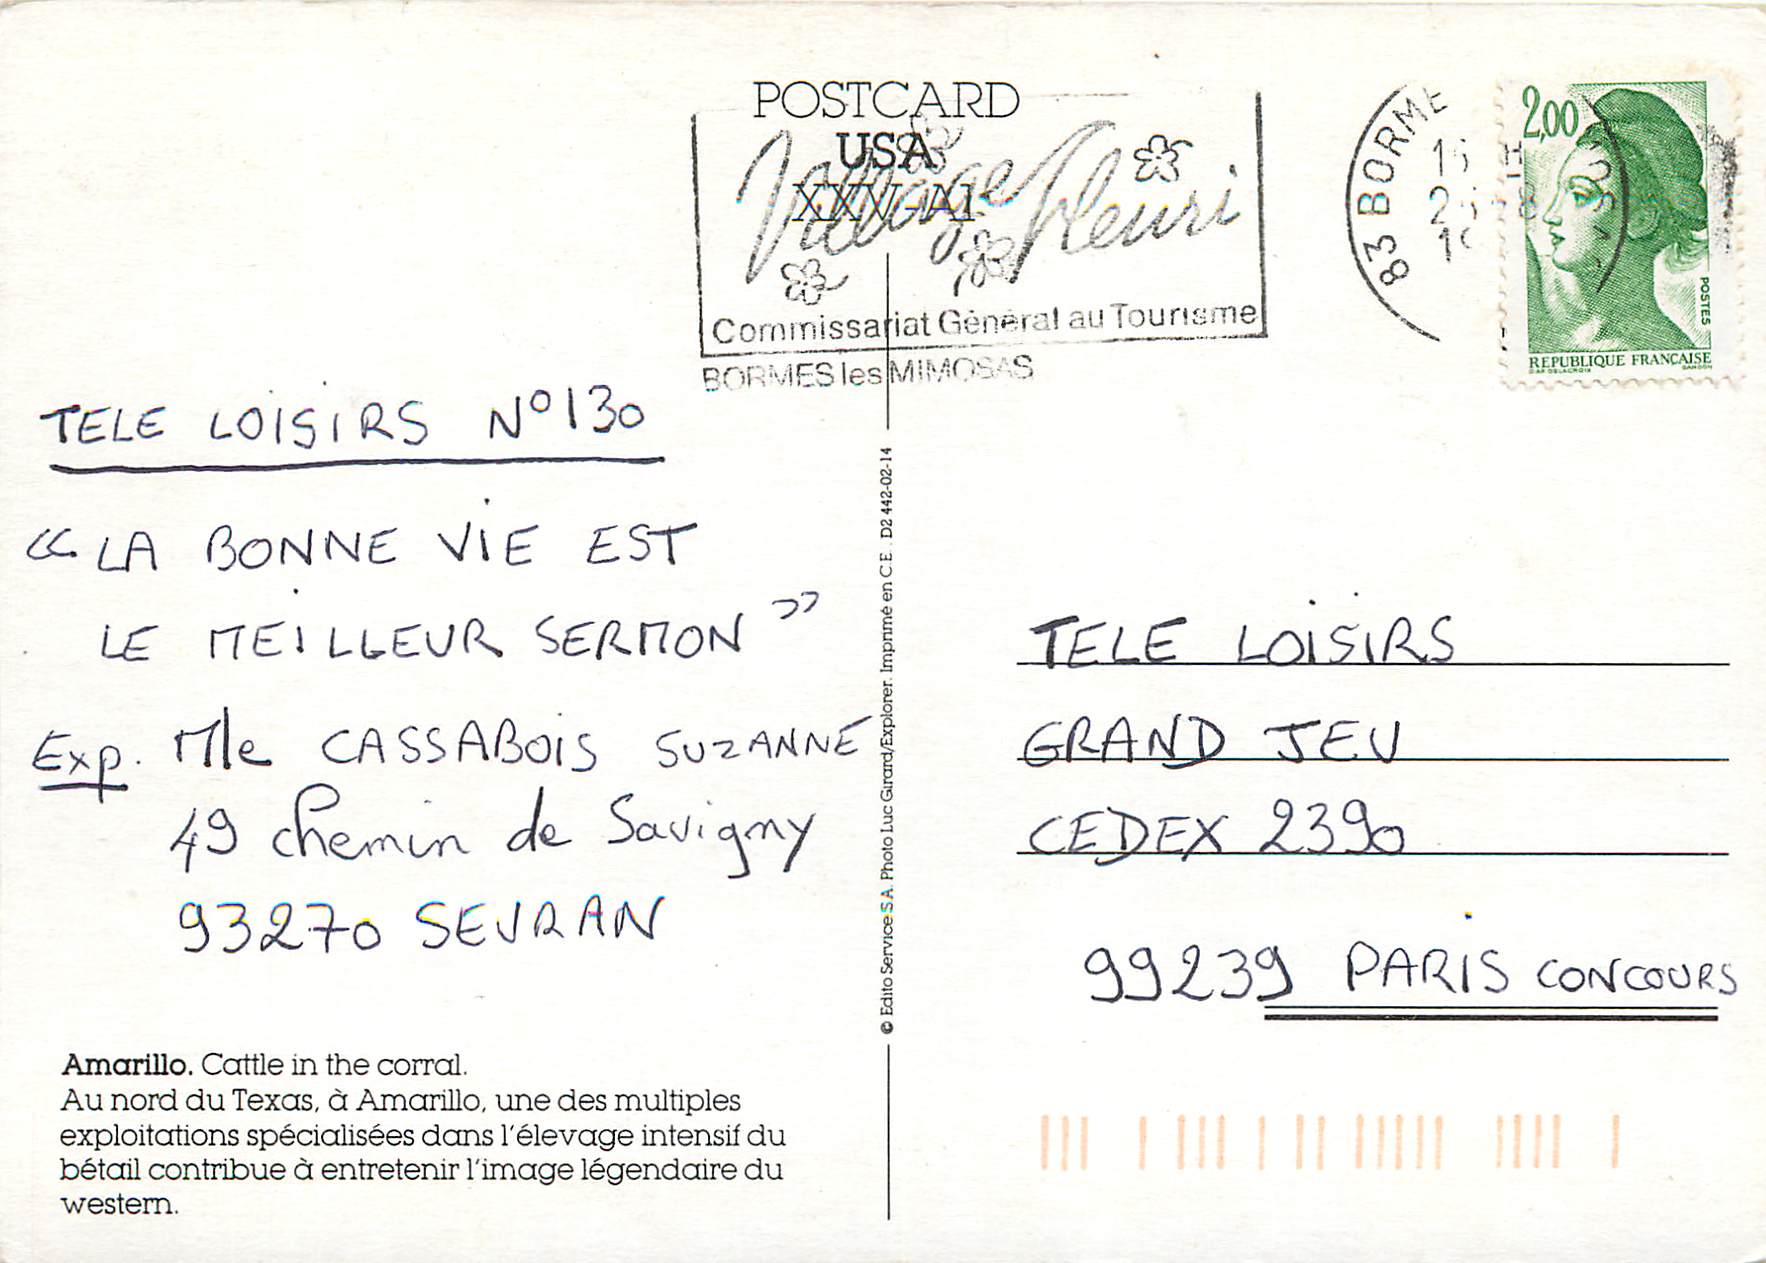 POSTCARD
USA
XXV-A1
Village Fleuri
Commissariat Général au Tourisme
BORMES les MIMOSAS
83 BORME
2,00
POSTES
REPUBLIQUE FRANÇAISE
D'AP. DELACROIX GANDON
TELE LOISIRS N° 130
« LA BONNE VIE EST
LE MEILLEUR SERMON »
Exp. Mle CASSABOIS SUZANNE
49 chemin de Savigny
93270 SEVRAN
Amarillo. Cattle in the corral.
Au nord du Texas, à Amarillo, une des multiples
exploitations spécialisées dans l'élevage intensif du
bétail contribue à entretenir l'image légendaire du
western.
© Edito Service S.A. Photo Luc Girard/Explorer. Imprimé en C.E. D2 442-02-14
TELE LOISIRS
GRAND JEU
CEDEX 2390
99239 PARIS CONCOURS